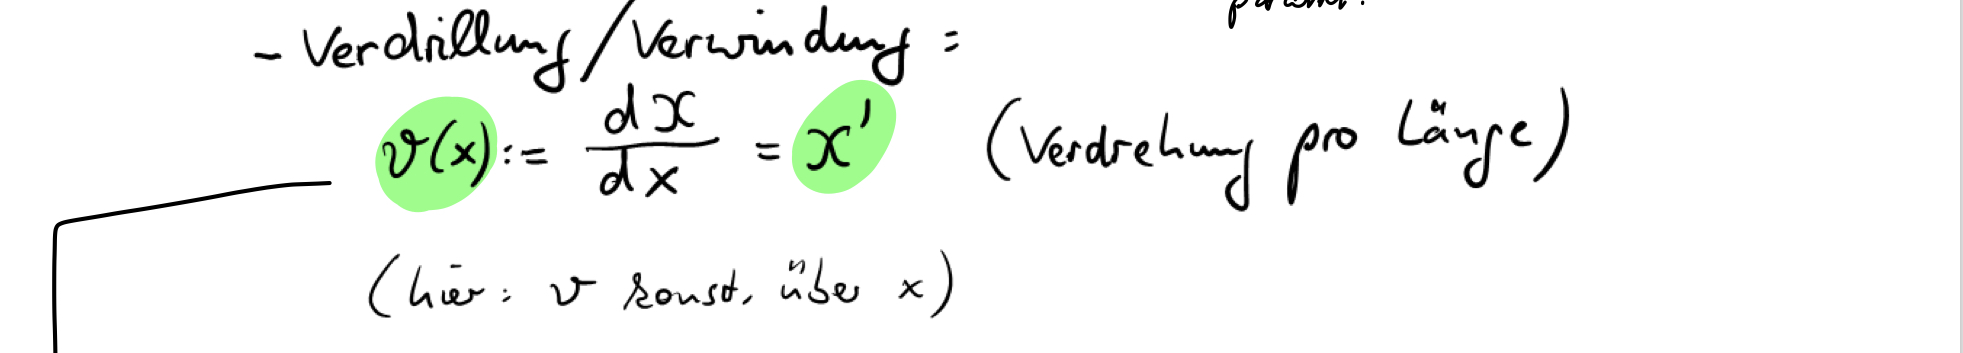 - Verdrillung/Verwindung =
ϑ(x) := dϰ/dx = ϰ' (Verdrehung pro Länge)
(hier: ϑ konst. über x)